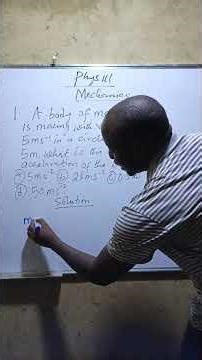 Phys 111
Mechanics
1 A body of m
is moving with
5ms⁻¹ in a circl
5m, what is the
acceleration of the
(a) 5ms⁻² (b) 25ms⁻² (c) 0.5
(d) 50ms⁻²
Solution
m